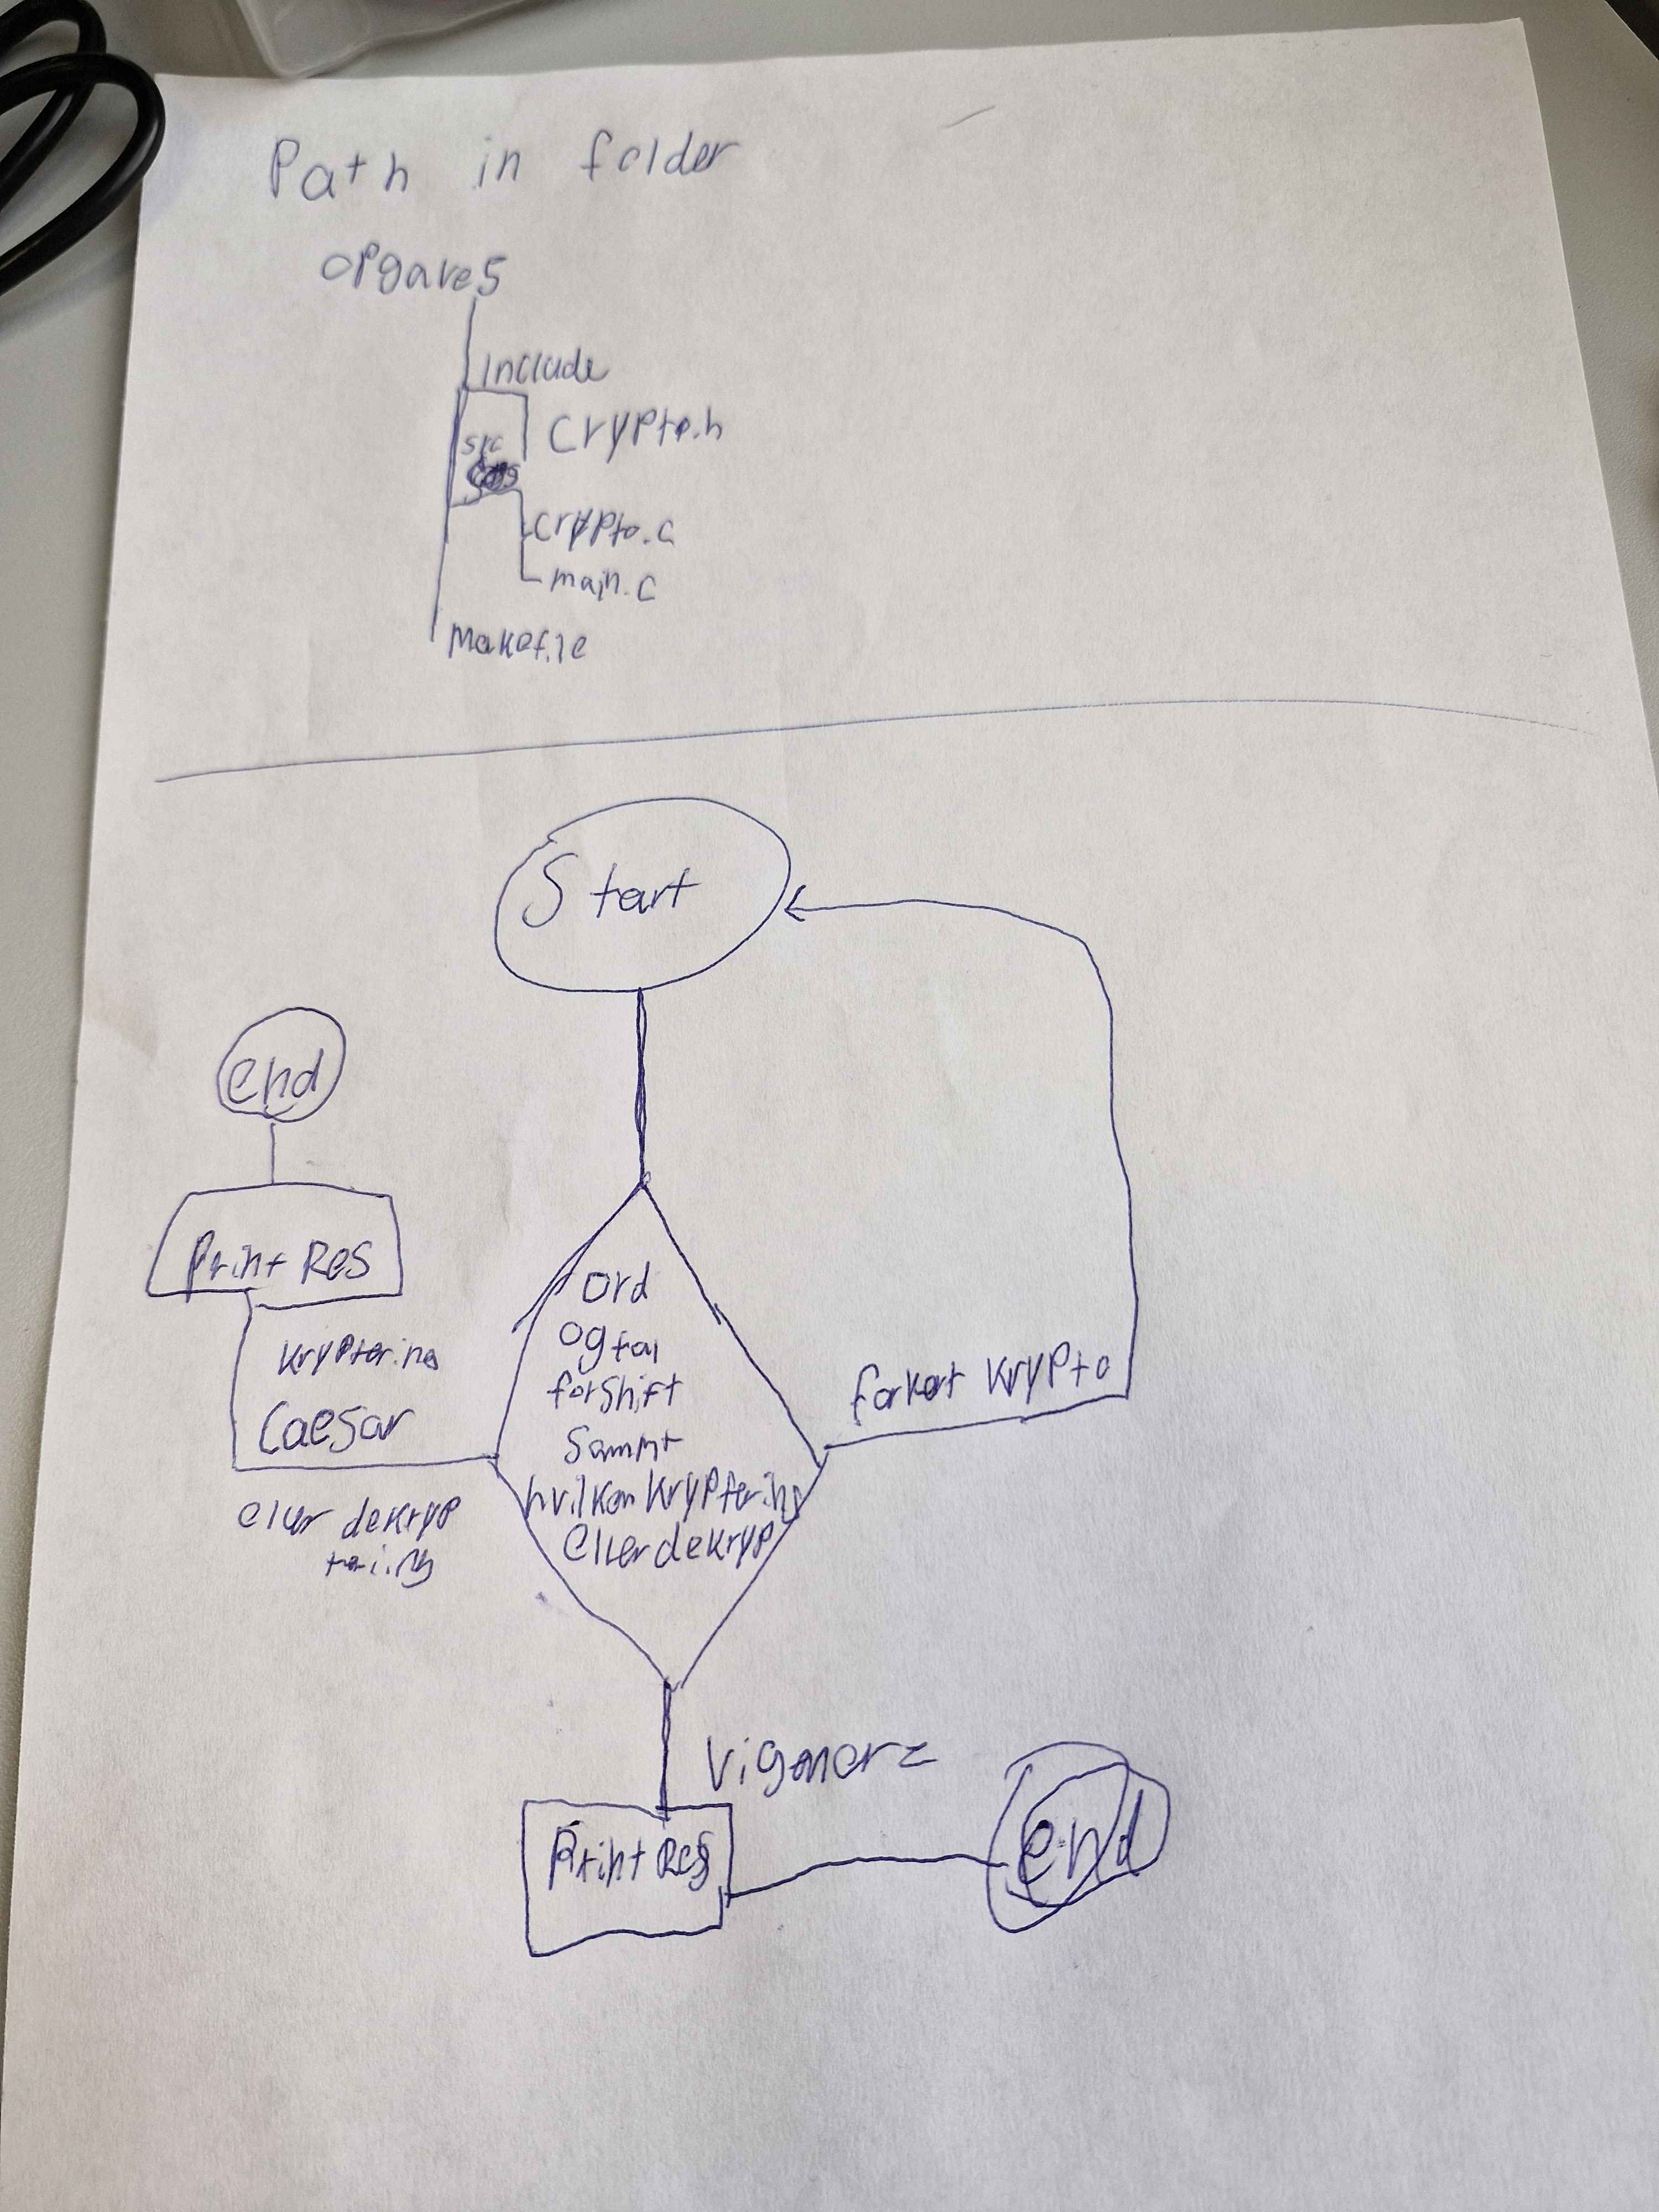 Path in folder
opgave5
include
crypto.h
src
crypto.c
main.c
Makefile
Start
end
Print Res
Kryptering
Caesar
eller dekryp
Ord
og tal
for shift
Sammt
hvilken kryptering
eller dekryp
forkert krypto
Vigenere
Print Res
end